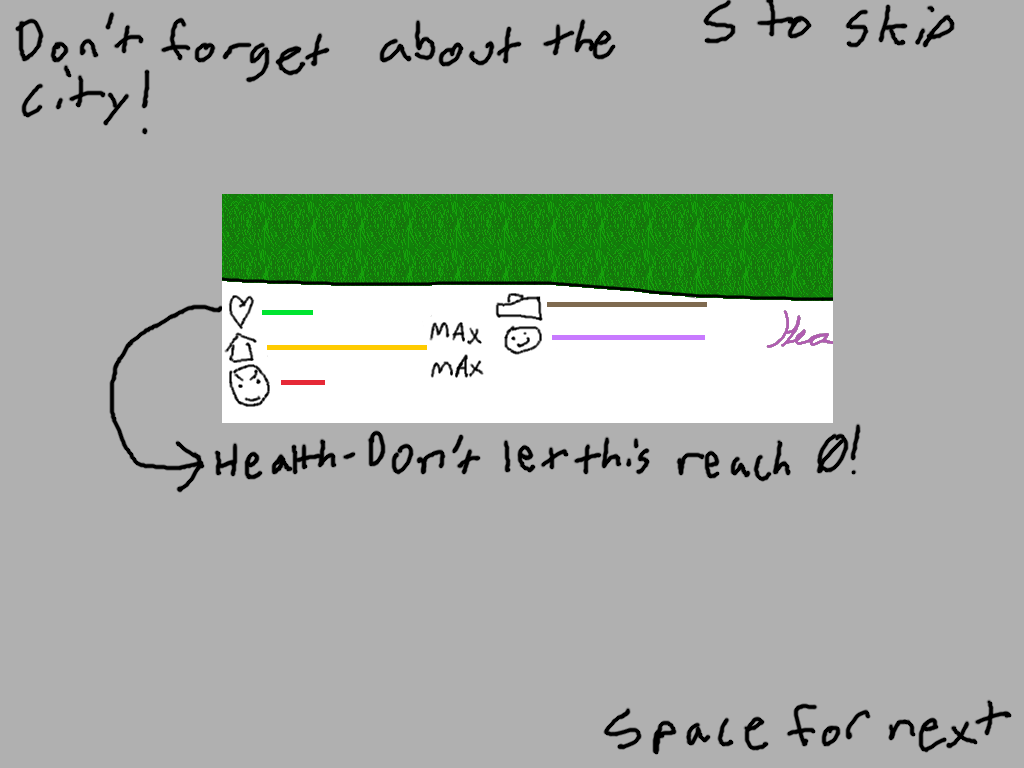 Don't forget about the
S to skip
city!
MAX
MAX
Hea
Health-Don't let this reach 0!
Space for next